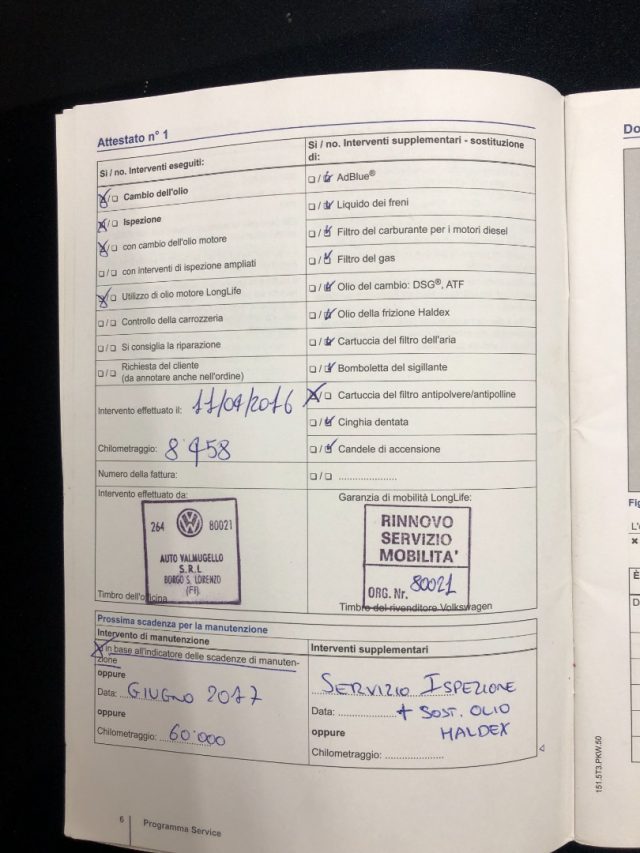 Attestato n° 1
Sì / no. Interventi eseguiti:
☒/❑ Cambio dell'olio
☒/❑ Ispezione
☒/❑ con cambio dell'olio motore
❑/❑ con interventi di ispezione ampliati
☒/❑ Utilizzo di olio motore LongLife
❑/❑ Controllo della carrozzeria
❑/❑ Si consiglia la riparazione
❑/❑ Richiesta del cliente
(da annotare anche nell'ordine)
Intervento effettuato il: 11/04/2016
Chilometraggio: 8458
Numero della fattura:
Intervento effettuato da:
264 VW 80021
AUTO VALMUGELLO
S.R.L
BORGO S. LORENZO
(FI)
Timbro dell'officina
Sì / no. Interventi supplementari - sostituzione
di:
❑/☑ AdBlue®
❑/☑ Liquido dei freni
❑/☑ Filtro del carburante per i motori diesel
❑/☑ Filtro del gas
❑/☑ Olio del cambio: DSG®, ATF
❑/☑ Olio della frizione Haldex
❑/☑ Cartuccia del filtro dell'aria
❑/☑ Bomboletta del sigillante
☒/❑ Cartuccia del filtro antipolvere/antipolline
❑/☑ Cinghia dentata
❑/☑ Candele di accensione
❑/❑ ....................
Garanzia di mobilità LongLife:
RINNOVO
SERVIZIO
MOBILITA'
ORG. Nr. 80021
Timbro del rivenditore Volkswagen
Prossima scadenza per la manutenzione
Intervento di manutenzione
☒ in base all'indicatore delle scadenze di manuten-
zione
oppure
Data: GIUGNO 2017
oppure
Chilometraggio: 60'000
Interventi supplementari
SERVIZIO ISPEZIONE
Data: .................... + SOST. OLIO
oppure HALDEX
Chilometraggio: ....................
6 Programma Service
151.5T3.PKW.50
Do
Fig
L'
È
D